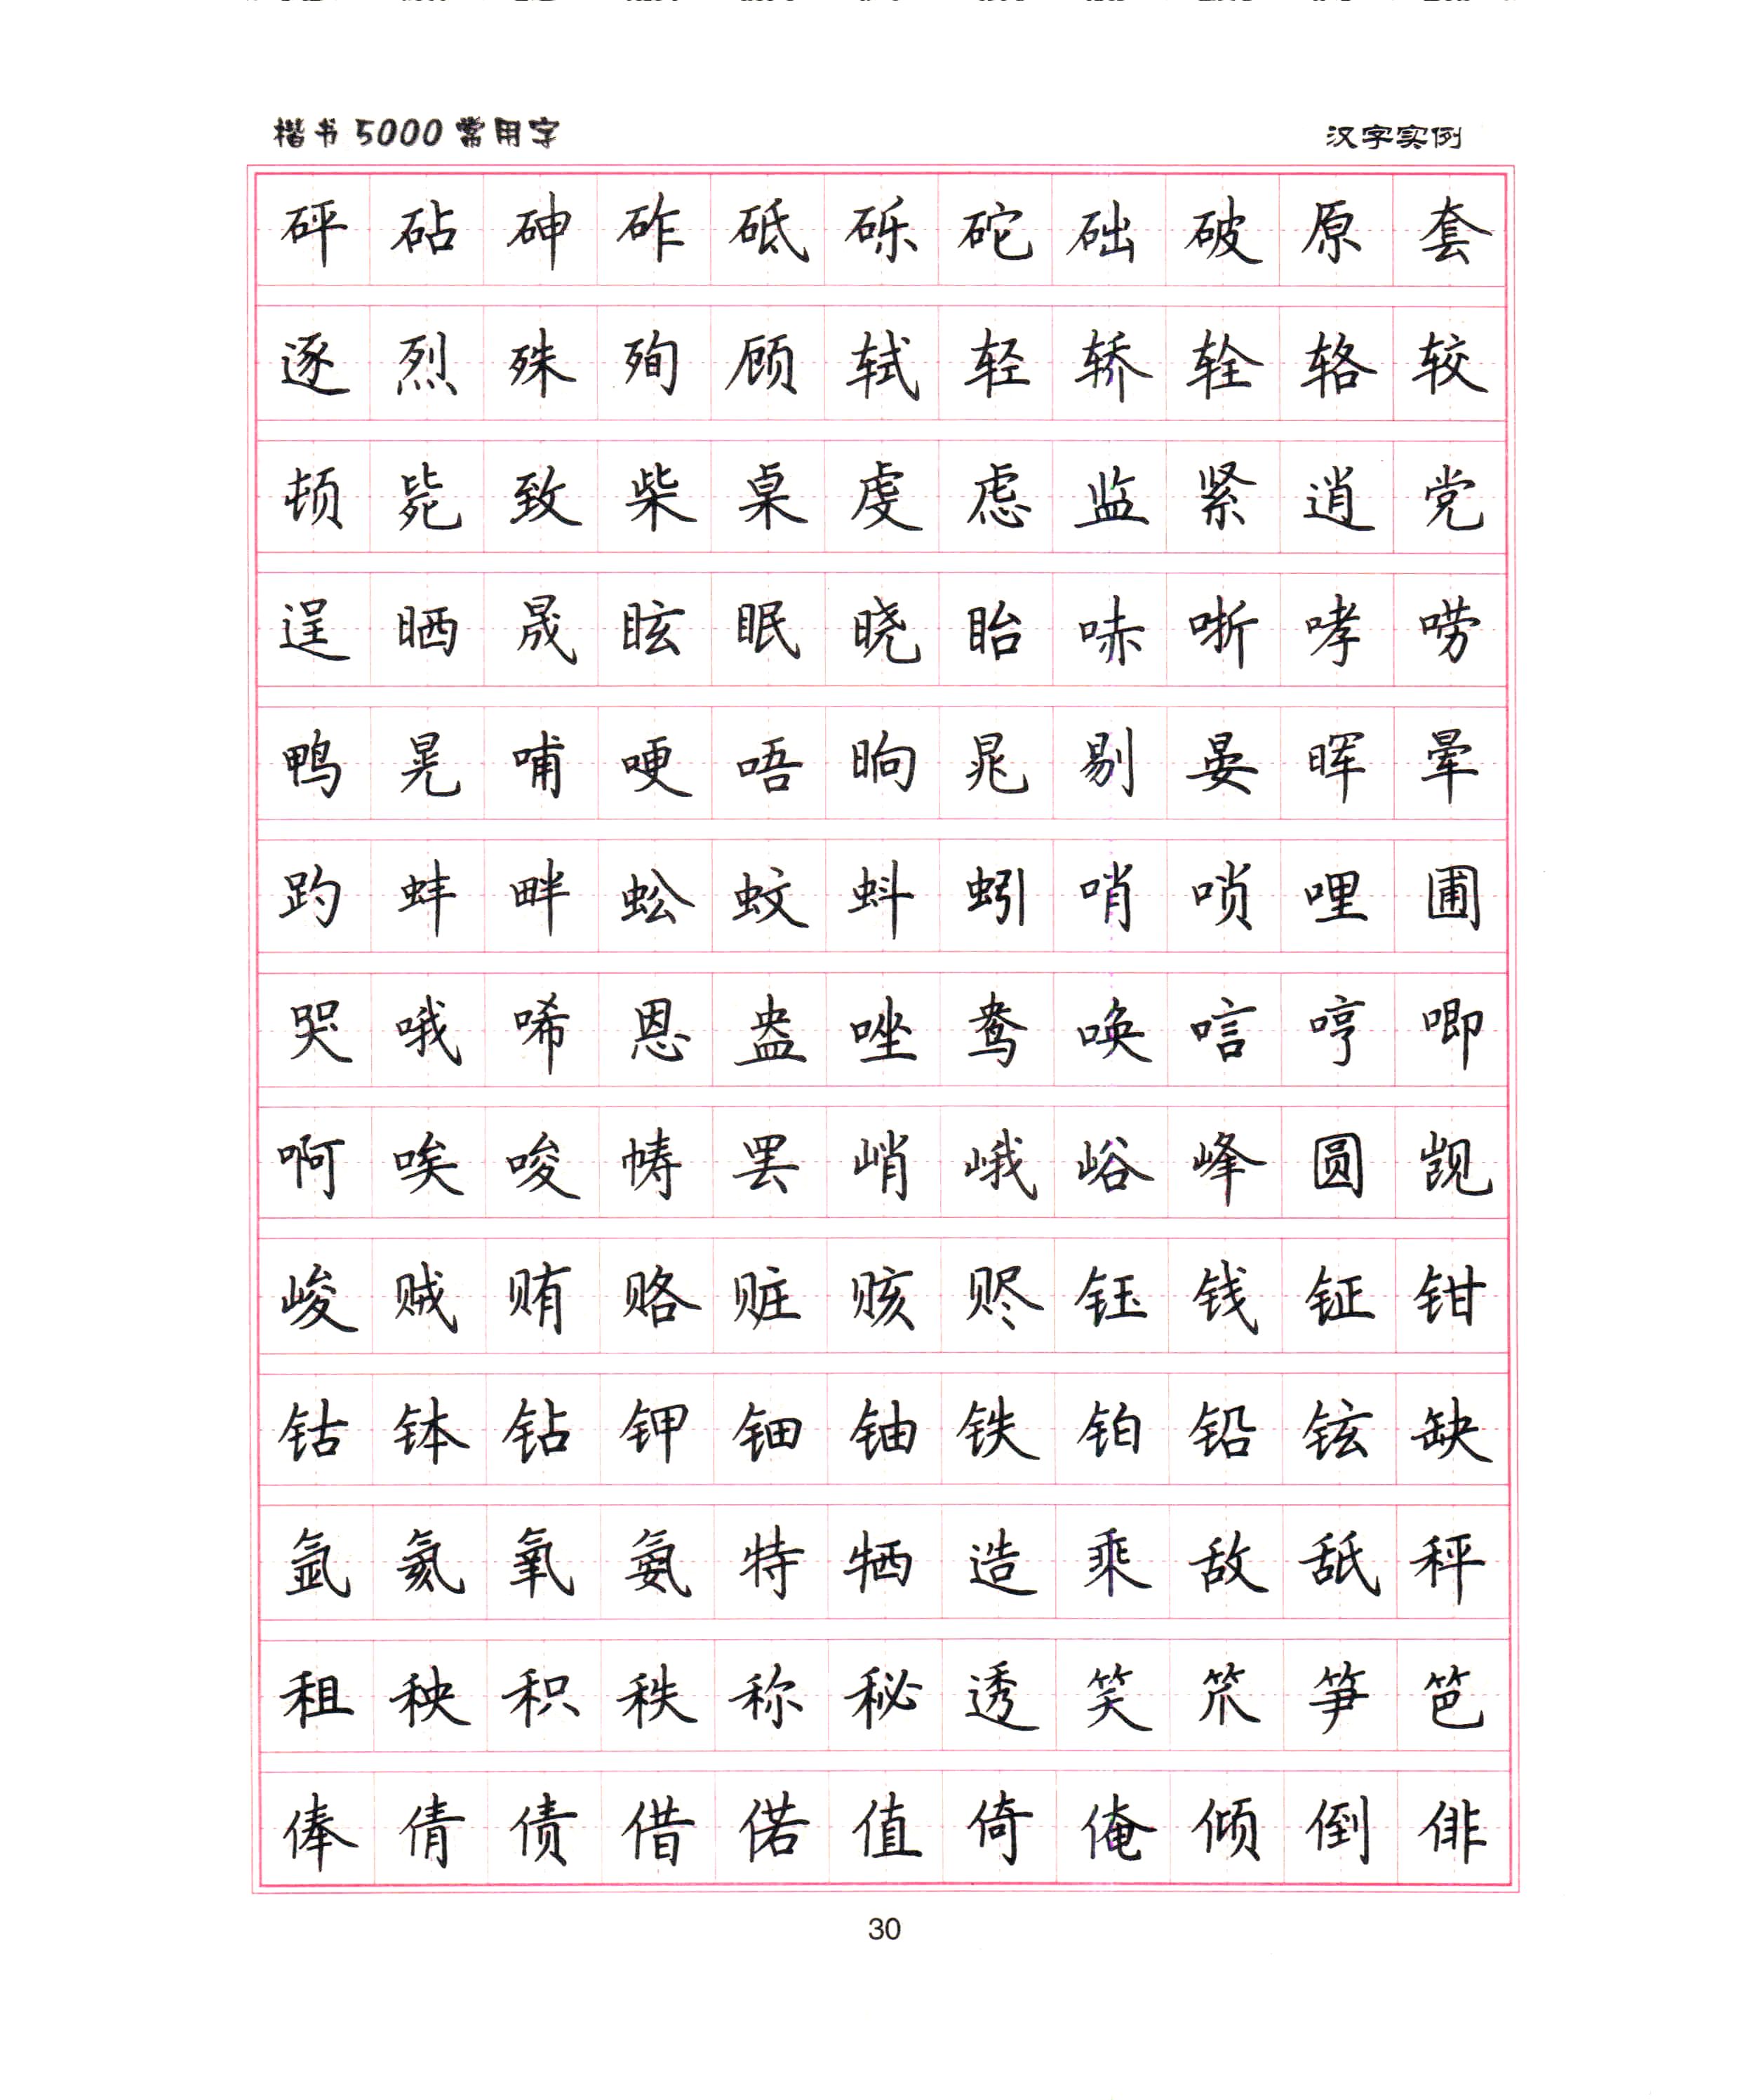 楷书5000常用字 汉字实例
砰 砧 砷 砟 砥 砾 砣 础 破 原 套
逐 烈 殊 殉 顾 轼 轻 轿 辁 辂 较
顿 毙 致 柴 桌 虔 虑 监 紧 逍 党
逞 晒 晟 眩 眠 晓 眙 哧 哳 哮 唠
鸭 晃 哺 哽 唔 晌 晁 剔 晏 晖 晕
趵 蚌 畔 蚣 蚊 蚪 蚓 哨 唢 哩 圃
哭 哦 唏 恩 盎 唑 鸯 唤 唁 哼 唧
啊 唉 唆 帱 罢 峭 峨 峪 峰 圆 觊
峻 贼 贿 赂 赃 赅 赆 钰 钱 钲 钳
钴 钵 钻 钾 钿 铀 铁 铂 铅 铉 缺
氩 氦 氧 氨 特 牺 造 乘 敌 舐 秤
租 秧 积 秩 称 秘 透 笑 笊 笋 笆
俸 倩 债 借 偌 值 倚 俺 倾 倒 俳
30